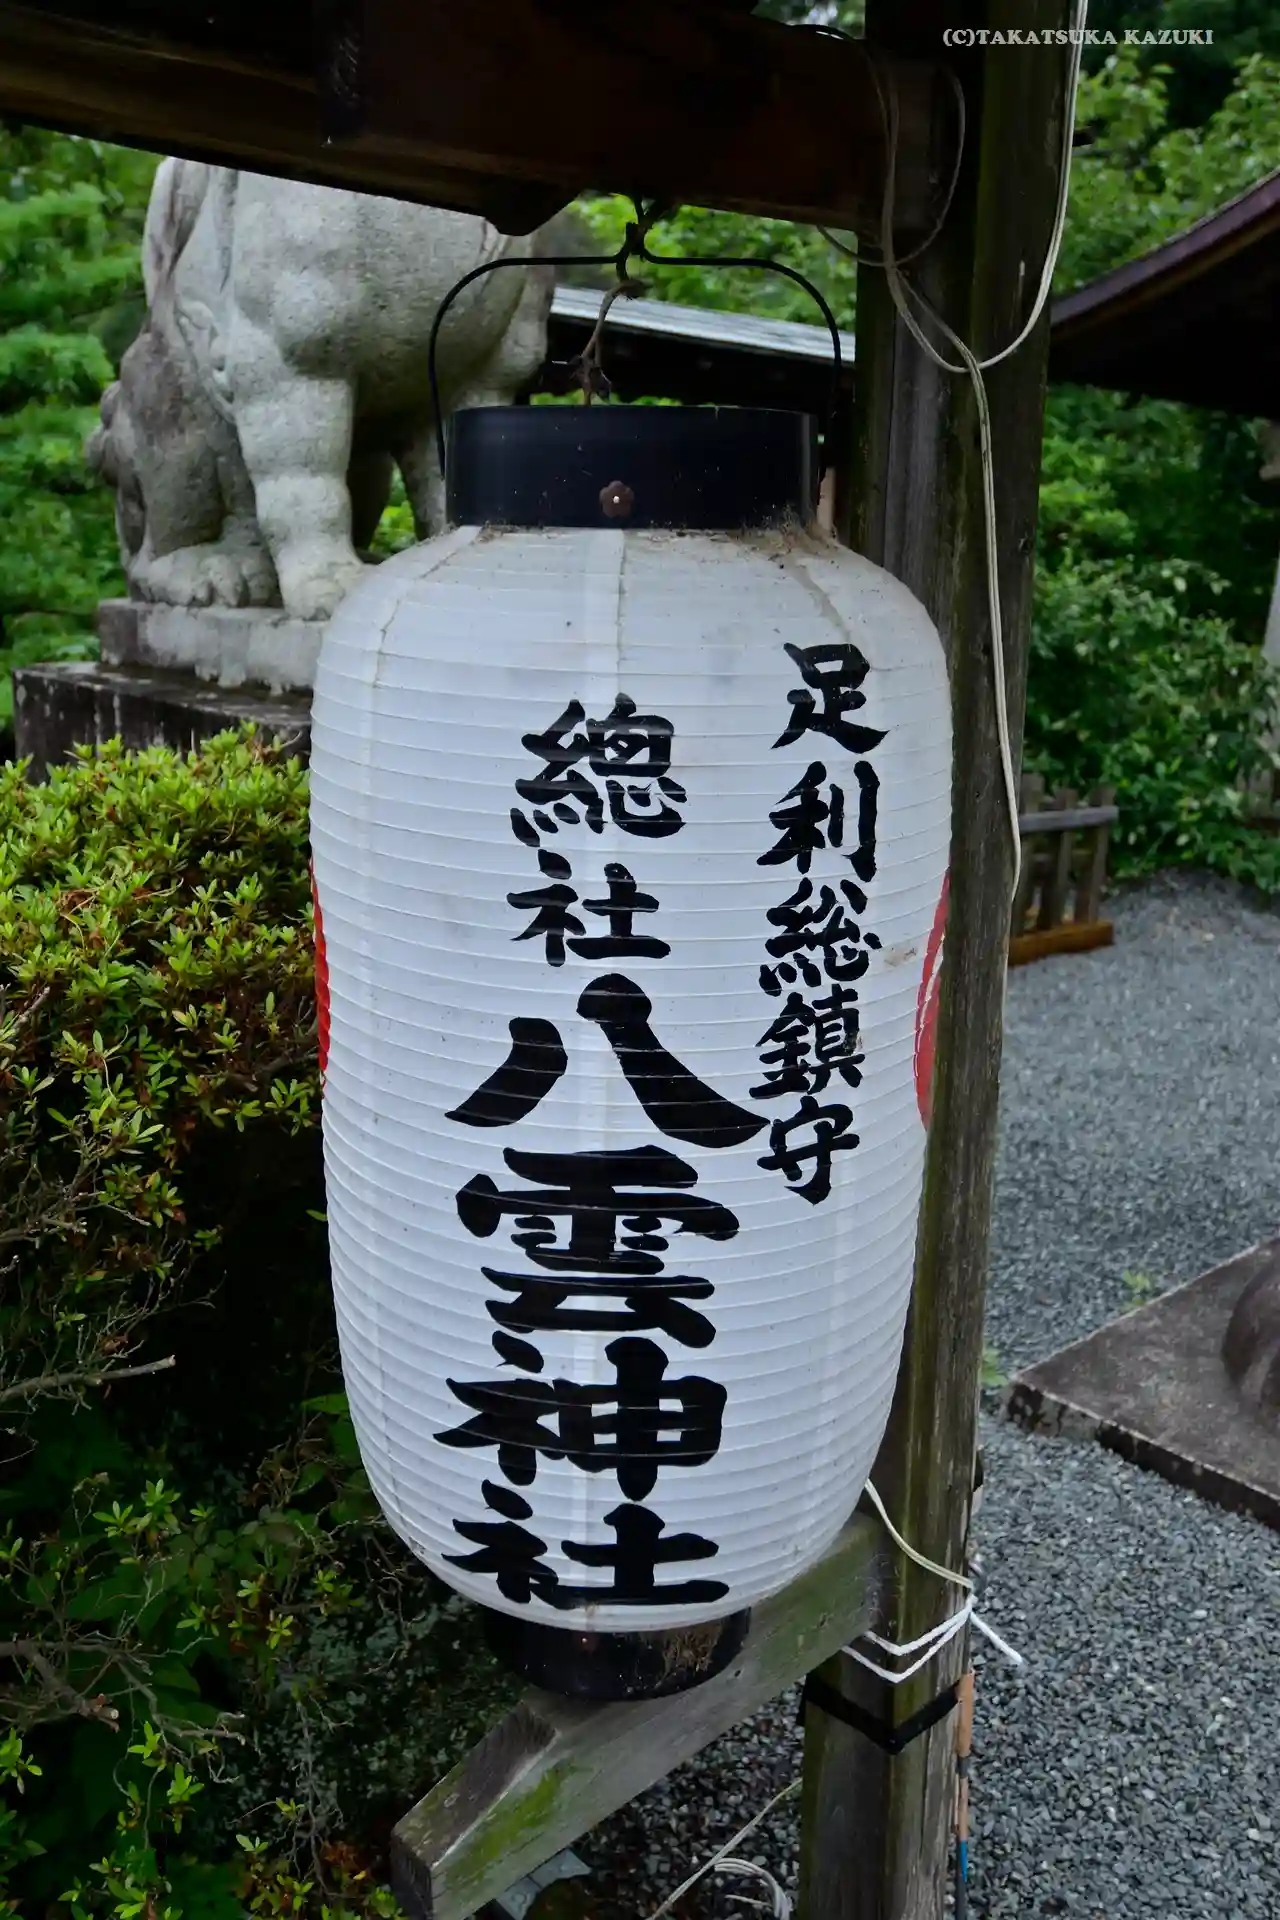 (C)TAKATSUKA KAZUKI
足利総鎮守
總社八雲神社